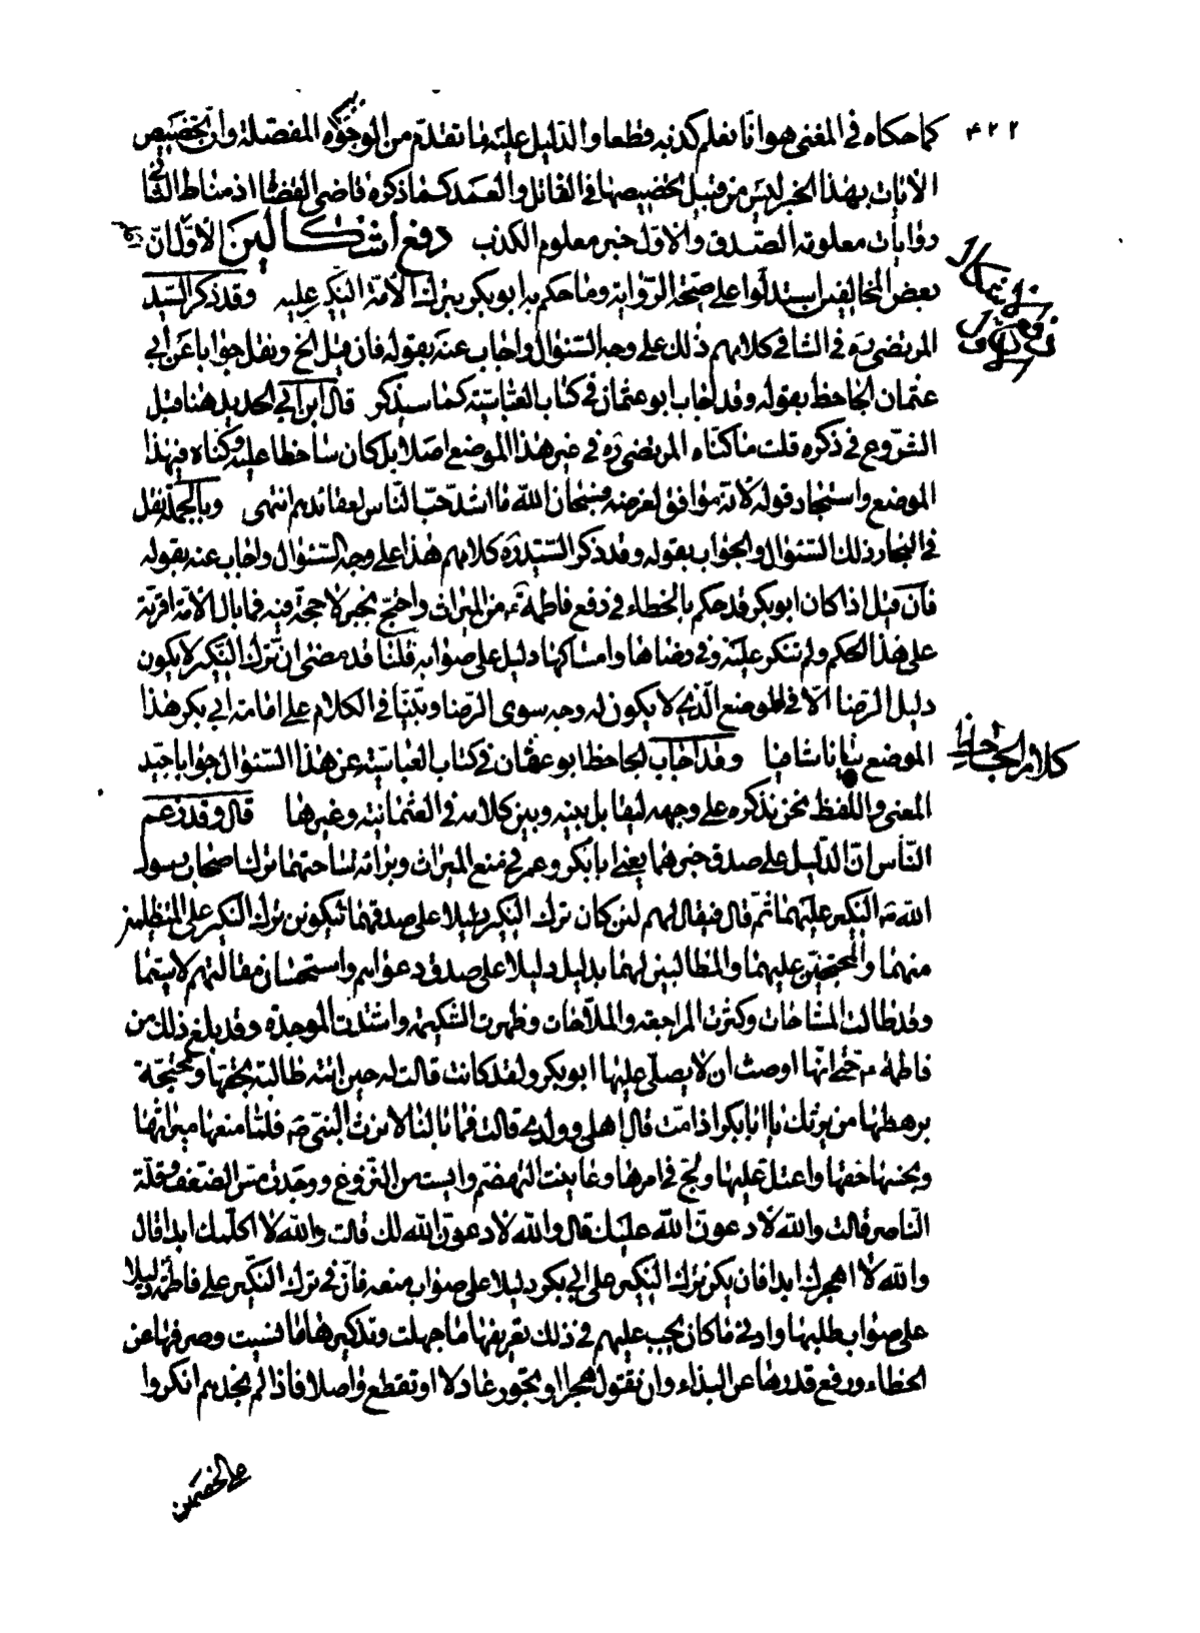 ۴۲۲
كما حكاه في المغنى هو انا نعلم كذبه قطعا والدليل عليه ما تقدم من الوجوه المفصلة وان تخصيص
الايات بهذا الخبر ليس من قبيل تخصيصها في القاتل والعبد كما ذكره قاضى القضاة اذ مناط الثانى
روايات معلومة الصدق والاول خبر معلوم الكذب دفع اشكالين الاول ان
بعض المخالفين استدلوا على صحة الرواية وما حكم به ابو بكر بترك الامة النكير عليه وقد ذكر السيد
المرتضى ره في الشافى كلامهم ذلك على وجه السئوال واجاب عنه بقوله فان قيل الخ ونقل جوابا عن ابي
عثمان الجاحظ بقوله وقد اجاب ابو عثمان في كتاب العباسية كما سيذكر قال ابن ابي الحديد هنا قبل
الشروع في ذكره قلت ما كناه المرتضى ره في غير هذا الموضع اصلا بل كان ساخطا عليه وكناه في هذا
الموضع واستجاد قوله لانه موافق لغرضه فسبحان الله ما اشد حب الناس لعقائدهم انتهى وبالجملة نقل
في البحار ذلك السئوال والجواب بقوله وقد ذكر السيد ره كلامهم هذا على وجه السئوال واجاب عنه بقوله
فان قيل اذا كان ابو بكر قد حكم بالخطاء في دفع فاطمة ع من الميراث واحتج بخبر لا حجة فيه فما بال الامة اقرته
على هذا الحكم ولم تنكر عليه وفي رضاها وامساكها دليل على صوابه قلنا قد مضى ان ترك النكير لا يكون
دليل الرضا الا في الموضع الذي لا يكون له وجه سوى الرضا وبينا في الكلام على امامة ابي بكر هذا
الموضع بيانا شافيا وقد اجاب الجاحظ ابو عثمان في كتاب العباسية عن هذا السئوال جوابا جيد
المعنى واللفظ نحن نذكره على وجهه ليقابل بينه وبين كلامه في العثمانية وغيرها قال وقد زعم
الناس ان الدليل على صدق خبرهما يعنى ابا بكر وعمر في منع الميراث وبرائة ساحتهما ترك اصحاب رسول
الله ص النكير عليهما ثم قال فيقال لهم لئن كان ترك النكير دليلا على صدقهما ليكونن ترك النكير على المتظلمين
منهما والمحتجين عليهما والمطالبين لهما بدليل دليلا على صدق دعواهم واستحسان مقالتهم لا سيما
وقد طالت المشاحات وكثرت المراجعة والملاحات وظهرت الشكيمة واشتدت الموجدة وقد بلغ ذلك من
فاطمة ع حتى انها اوصت ان لا يصلى عليها ابو بكر ولقد كانت قالت له حين اتته طالبة بحقها ومحتجة
برهطها من يرثك يا ابا بكر اذا مت قال اهلى وولدي قالت فما بالنا لا نرث النبى ص فلما منعها ميراثها
وبخسها حقها واعتل عليها ولج في امرها وعاينت التهضم وايست من النزوع ووجدت مس الضعف وقلة
الناصر قالت والله لادعون الله عليك قال والله لادعون الله لك قالت والله لا اكلمك ابدا قال
والله لا اهجرك ابدا فان يكن ترك النكير على ابي بكر دليلا على صواب منعه فان في ترك النكير على فاطمة دليلا
على صواب طلبها وادنى ما كان يجب عليهم في ذلك تعريفها ما جهلت وتذكيرها ما نسيت وصرفها عن
الخطاء ورفع قدرها عن البذاء وان تقول هجرا او تجور عادلا او تقطع واصلا فاذا لم نجدهم انكروا
كلام الجاحظ
على الخصمين